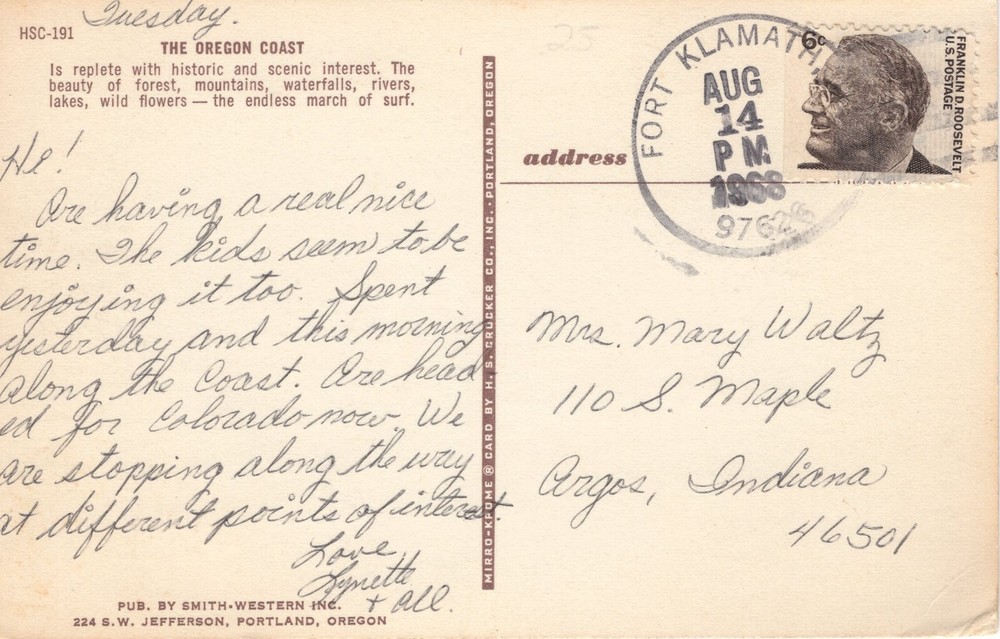 Tuesday.
HSC-191
THE OREGON COAST
Is replete with historic and scenic interest. The
beauty of forest, mountains, waterfalls, rivers,
lakes, wild flowers — the endless march of surf.
Hi!
Are having a real nice
time. The kids seem to be
enjoying it too. Spent
yesterday and this morning
along the Coast. Are head
ed for Colorado now. We
are stopping along the way
at different points of interest.
Love
Lynette
+ all.
PUB. BY SMITH-WESTERN INC.
224 S.W. JEFFERSON, PORTLAND, OREGON
MIRRO-KROME ® CARD BY H. S. CROCKER CO., INC. · PORTLAND, OREGON
25
address
FORT KLAMATH
AUG
14
PM
1968
97626
6c
FRANKLIN D. ROOSEVELT
U.S. POSTAGE
Mrs. Mary Waltz
110 S. Maple
Argos, Indiana
46501